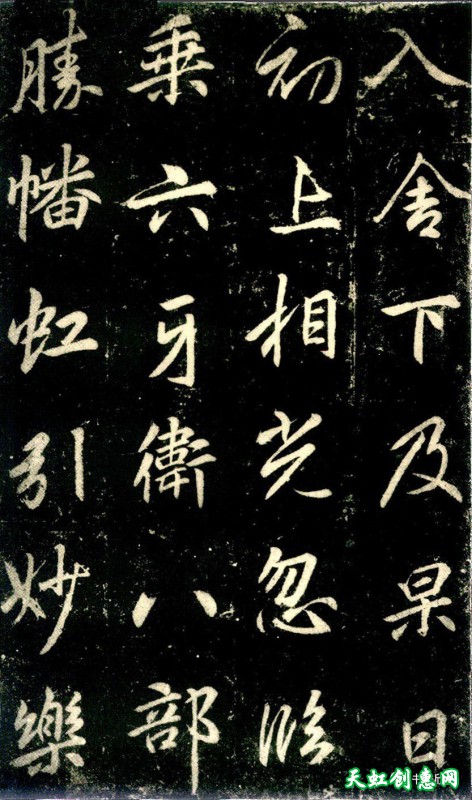 入舍下及杲日
初上相光忽臨
乘六牙衛八部
勝幡虹引妙樂
天虹创意网